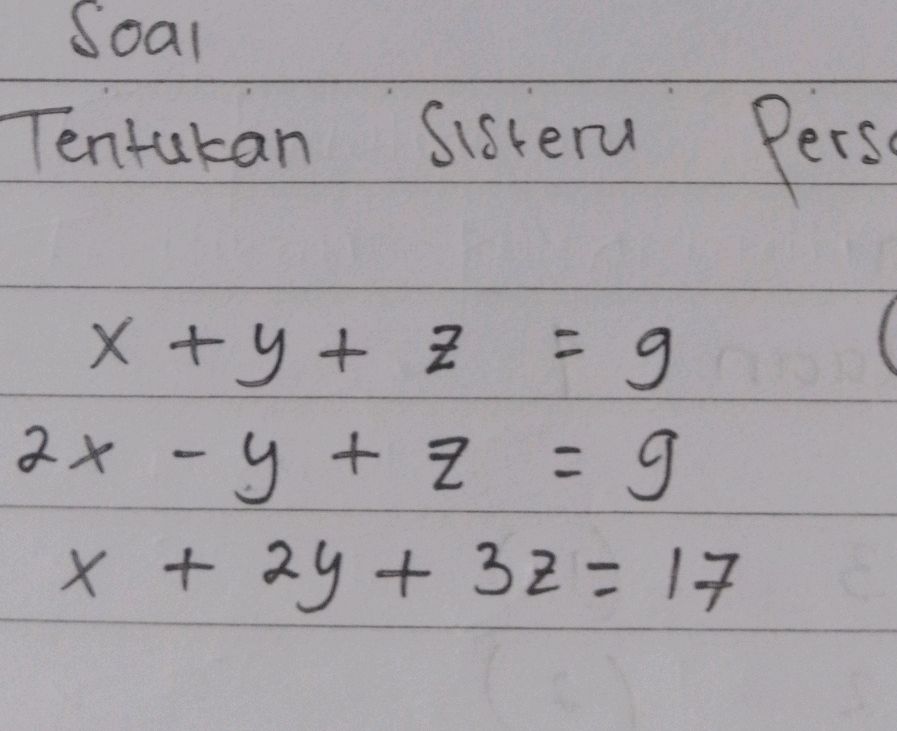 Soal
Tentukan Sistem Pers
x + y + z = 9
2x - y + z = 9
x + 2y + 3z = 17